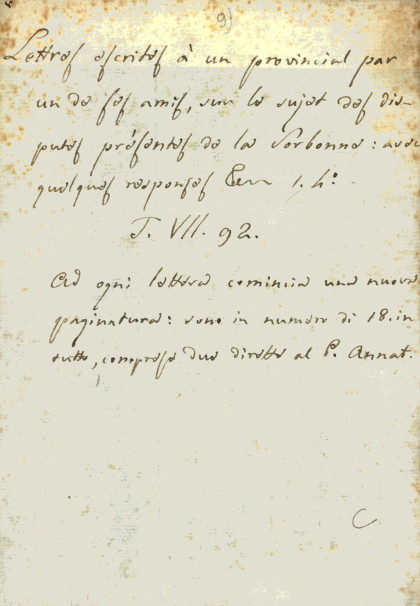 9)
Lettres escrites à un provincial par
un de ses amis, sur le sujet des dis-
putes présentes de la Sorbonne: avec
quelques responses 1. 4°
J. VII. 92.
Ad ogni lettera comincia una nuova
paginatura: sono in numero di 18. in
tutto, comprese due dirette al P. Annat.
C